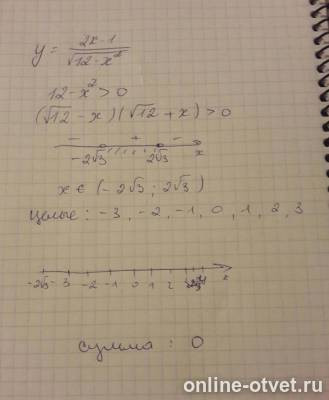 y = (2x-1)/√(12-x²)
12-x² > 0
(√12 - x)(√12 + x) > 0
- + -
-2√3 2√3 x
x ∈ (-2√3 ; 2√3)
целые : -3, -2, -1, 0, 1, 2, 3
-2√3 -3 -2 -1 0 1 2 x
сумма : 0
online-otvet.ru